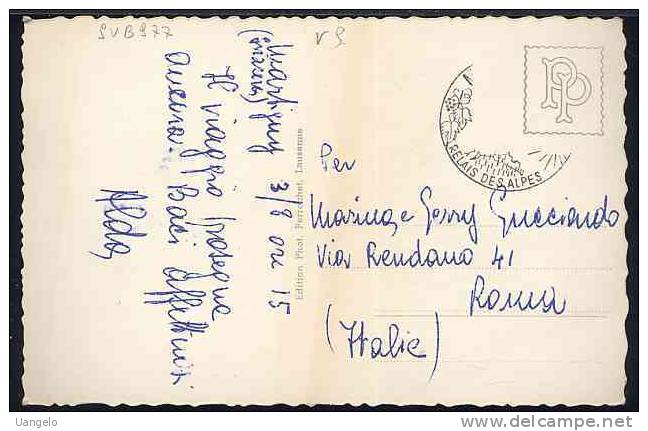 SVB977
VS
Martigny 3/8 ore 15
(Svizzera)
Il viaggio prosegue
ancora. Baci affettuosi
Aldo
Edition Phot. Perrochet, Lausanne
PP
MARTIGNY
RELAIS DES ALPES
Per
Marina e Gerry Guccia​ndo
Via Rendano 41
Roma
(Italie)
Uangelo
www.delcampe.net